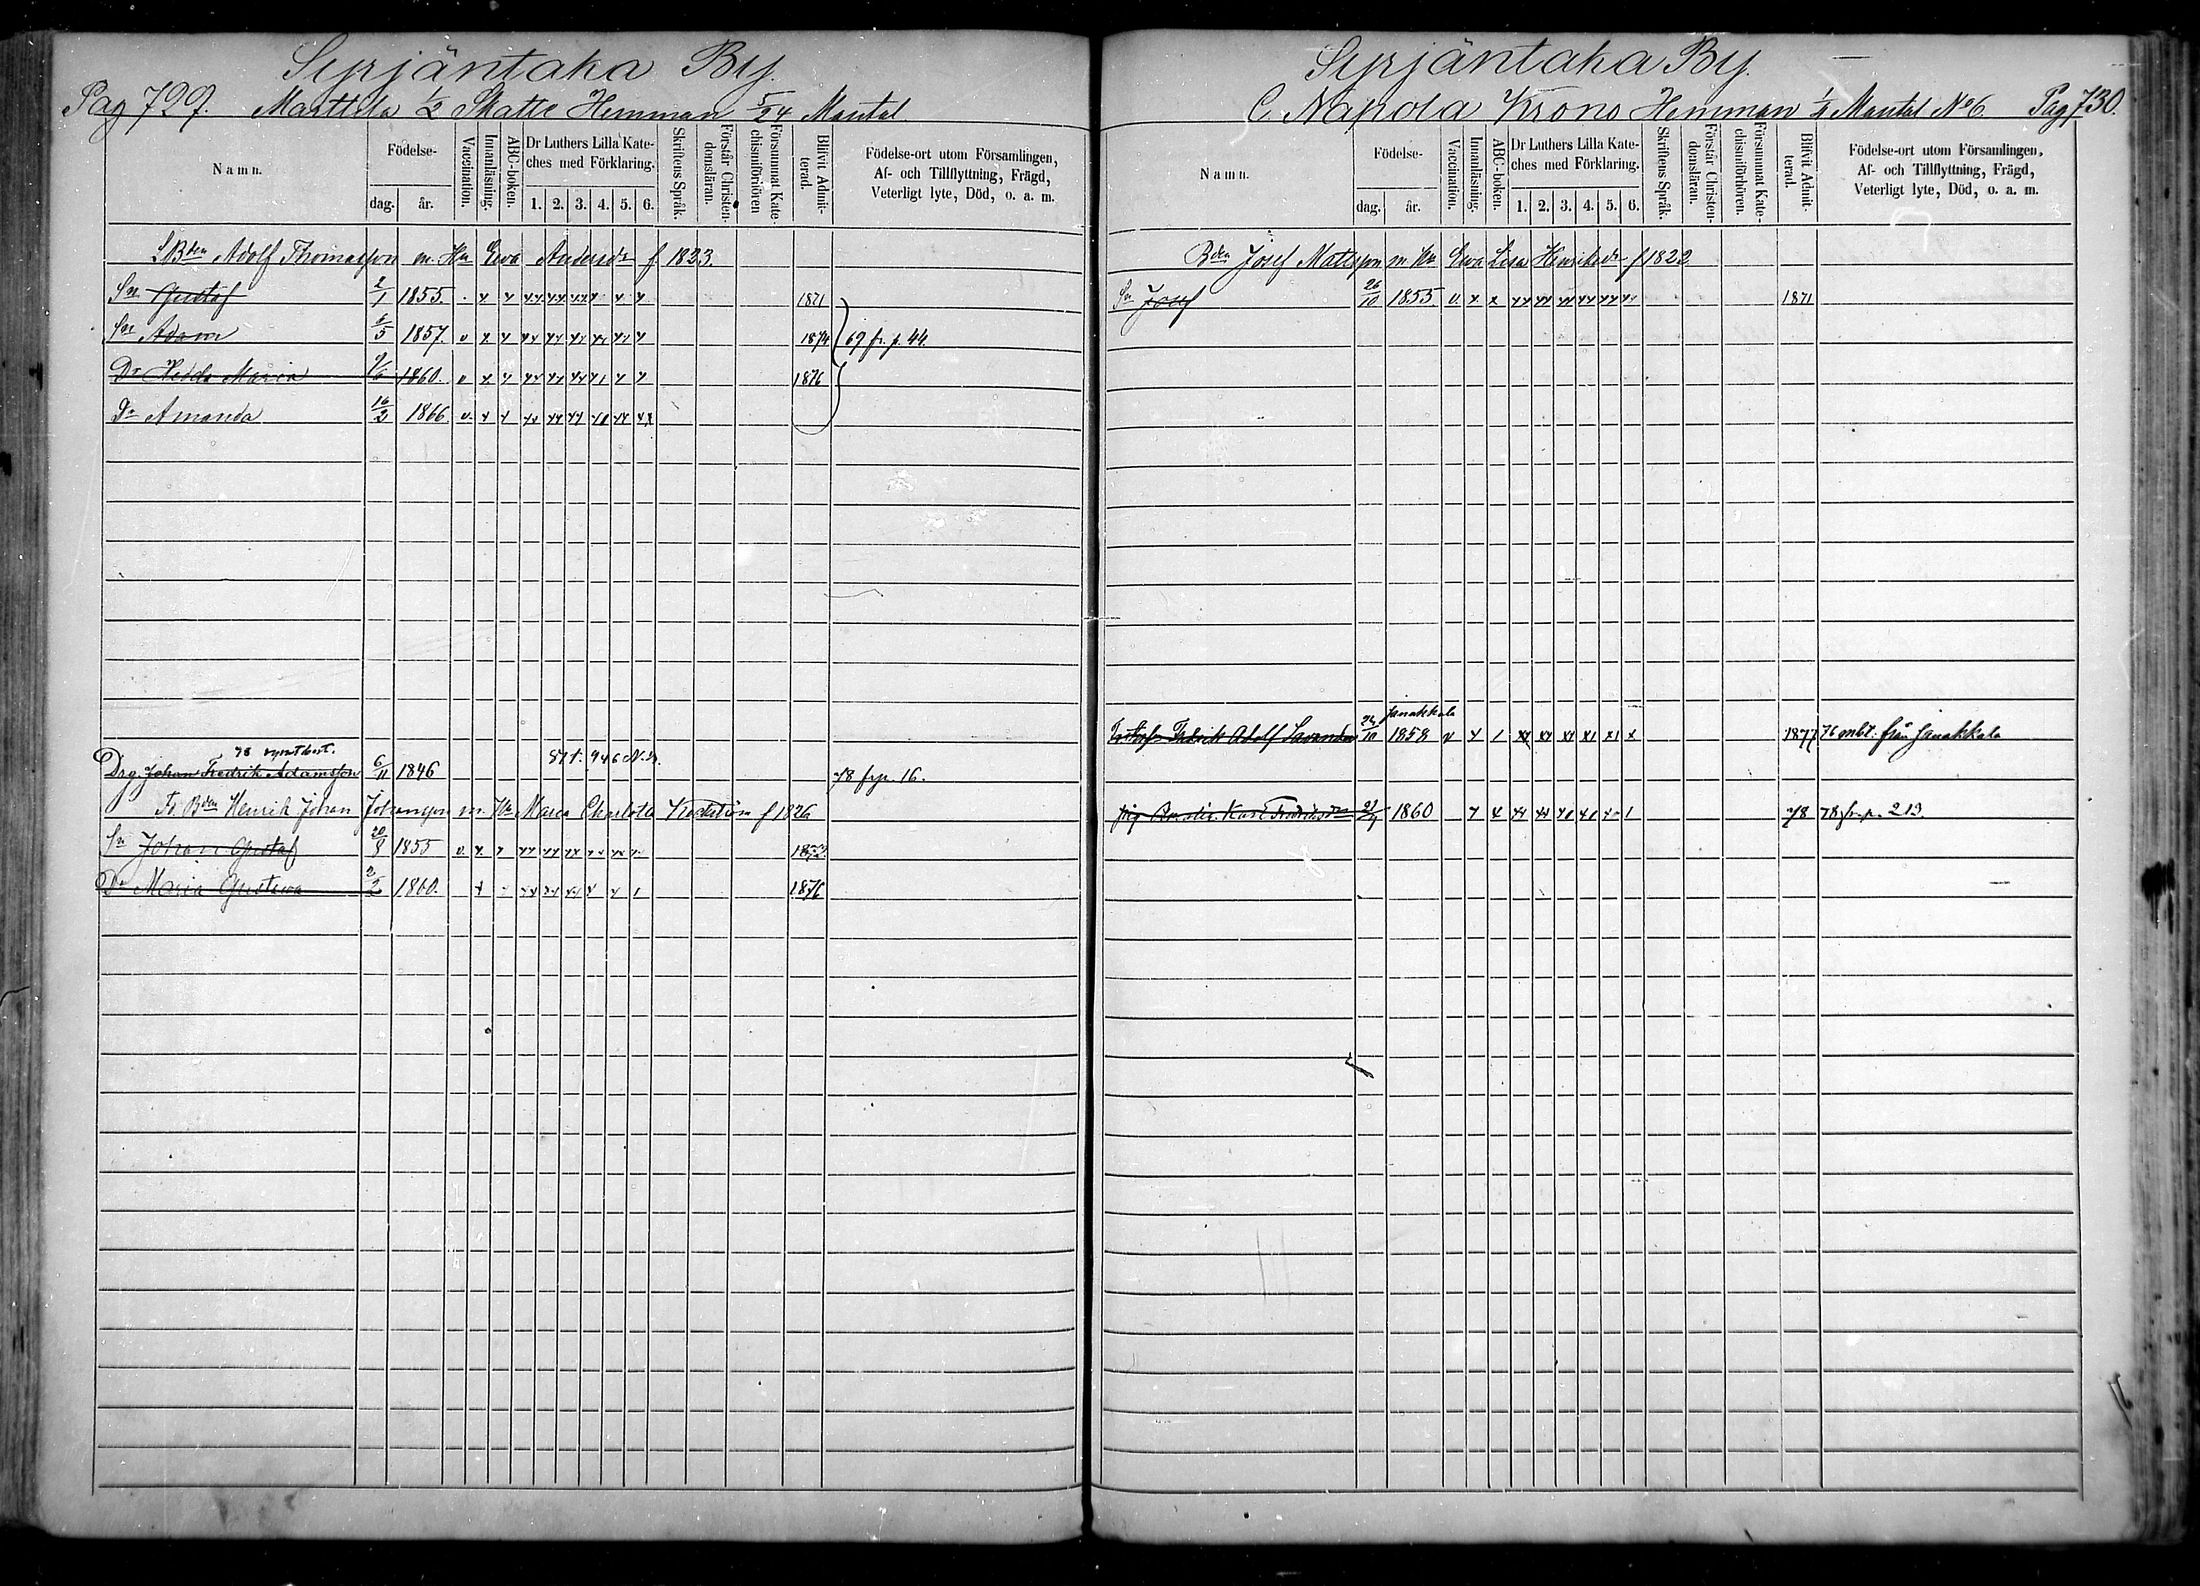 Syrjäntaka By.
Pag 729. Marttila 1/2 Skatte Hemman 5/24 Mantal
Namn.
Födelse-
dag.
år.
Vaccination.
Innanläsning.
ABC-boken.
Dr Luthers Lilla Kate-
ches med Förklaring.
1. 2. 3. 4. 5. 6.
Skriftens Språk.
Förstår Christen-
domsläran.
Försummat Kate-
chismiförhören
Blifvit Admit-
terad.
Födelse-ort utom Församlingen,
Af- och Tillflyttning, Frägd,
Veterligt lyte, Död, o. a. m.
Bden Adolf Thomasson m. Hu Ewa Andersdr f 1823.
Sn Gustaf 2/1 1855. 1871
Sn Adam 6/5 1857. v 1874 69 fr. p. 44.
Dr Hedda Maria 1860. v 1876
Dr Amanda 16/2 1866. v.
Drg. Johan Fredrik Adamsson 6/11 1846 78 fr p. 16.
Bden Henrik Johan Johansson m. Hu Maria Charlotta f 1826
Sn Johan Gustaf 20/8 1855 v.
Dr Maria Gustava 2/2 1860. 1876
Syrjäntaka By.
C. Napola Krono Hemman 1/4 Mantal No 6. Pag 730.
Namn.
Födelse-
dag.
år.
Vaccination.
Innanläsning.
ABC-boken.
Dr Luthers Lilla Kate-
ches med Förklaring.
1. 2. 3. 4. 5. 6.
Skriftens Språk.
Förstår Christen-
domsläran.
Försummat Kate-
chismiförhören.
Blifvit Admit-
terad.
Födelse-ort utom Församlingen,
Af- och Tillflyttning, Frägd,
Veterligt lyte, Död, o. a. m.
Bden Josef Mattsson m Hu Ewa Lisa Henriksdr f 1822
Sn Josef 26/10 1855 v 1871
Janakkala
Fredrik Adolf 1858 v 1877 76 från Janakkala
Karl Fredriksson 1860 78 78 fr. p. 213.
16